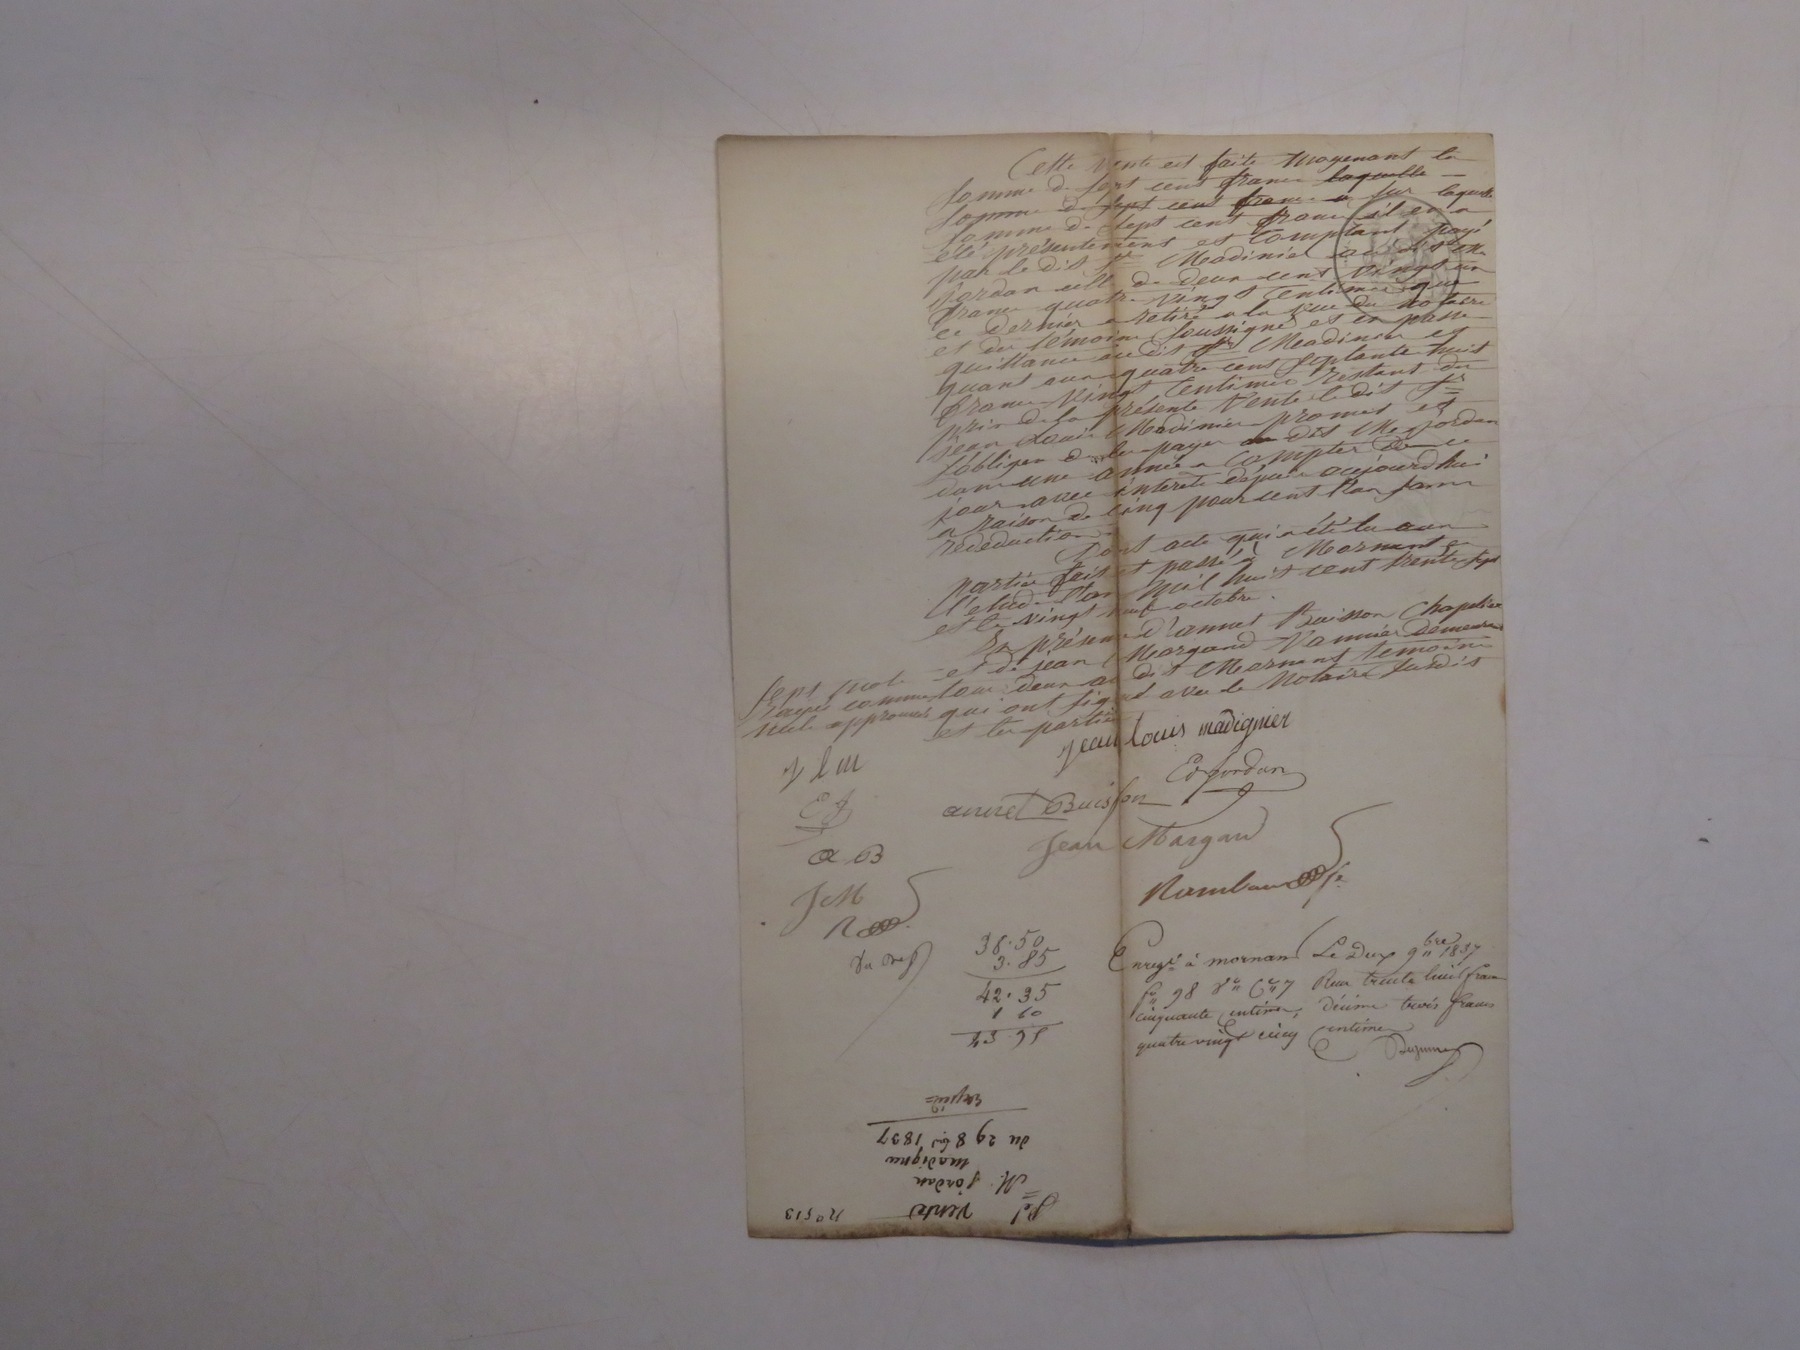 Cette vente est faite moyenant la
somme de sept cent franc laquelle
somme de sept cent franc a sur laquelle
somme de sept cent franc il en a
été présentement et comptant payé
par le dit sr Madinier au dit Me
jordan celle de deux cent vingt un
franc quatre vingt centimes que
ce dernier a retiré a la vue du notaire
et des témoins soussigné et en passe
quittance au dit sr Madinier et
quant aux quatre cent septante huit
franc vingt centimes restant du
prix de la présente vente le dit sr
jean Louis Madinier promet et
s'obliger de les payer au dit Me jordan
dans une année a compter de ce
jour avec intérêt depuis aujourd'hui
a raison de cinq pour cent l'an sans
rededuction
Dont acte qui a été lu aux
parties fait et passé à Mornant en
l'etude l'an mil huit cent trente sept
et le vingt neuf octobre.
En présence d'annet Buisson Chapelier
et de jean Margand Vannier demeurant
tous deux au dit Mornant temoins
qui ont signé avec le Notaire susdit
et les parties
sept mots
rayés comme
nuls approuvés
jean louis madignier
J l m
Ed jordan
E J
annet Buisson
a B
Jean Margand
J M
Rambaud
R
38.50
3.85
42.35
1 60
43.95
Enregt à mornant Le Deux 9bre 1837
fo 98 Vo Ce 7 Reçu trente huit francs
cinquante centimes, décime trois francs
quatre vingt cinq centimes
No 513
Vente
M. jordan
madignier
du 29 8bre 1837
Expéd